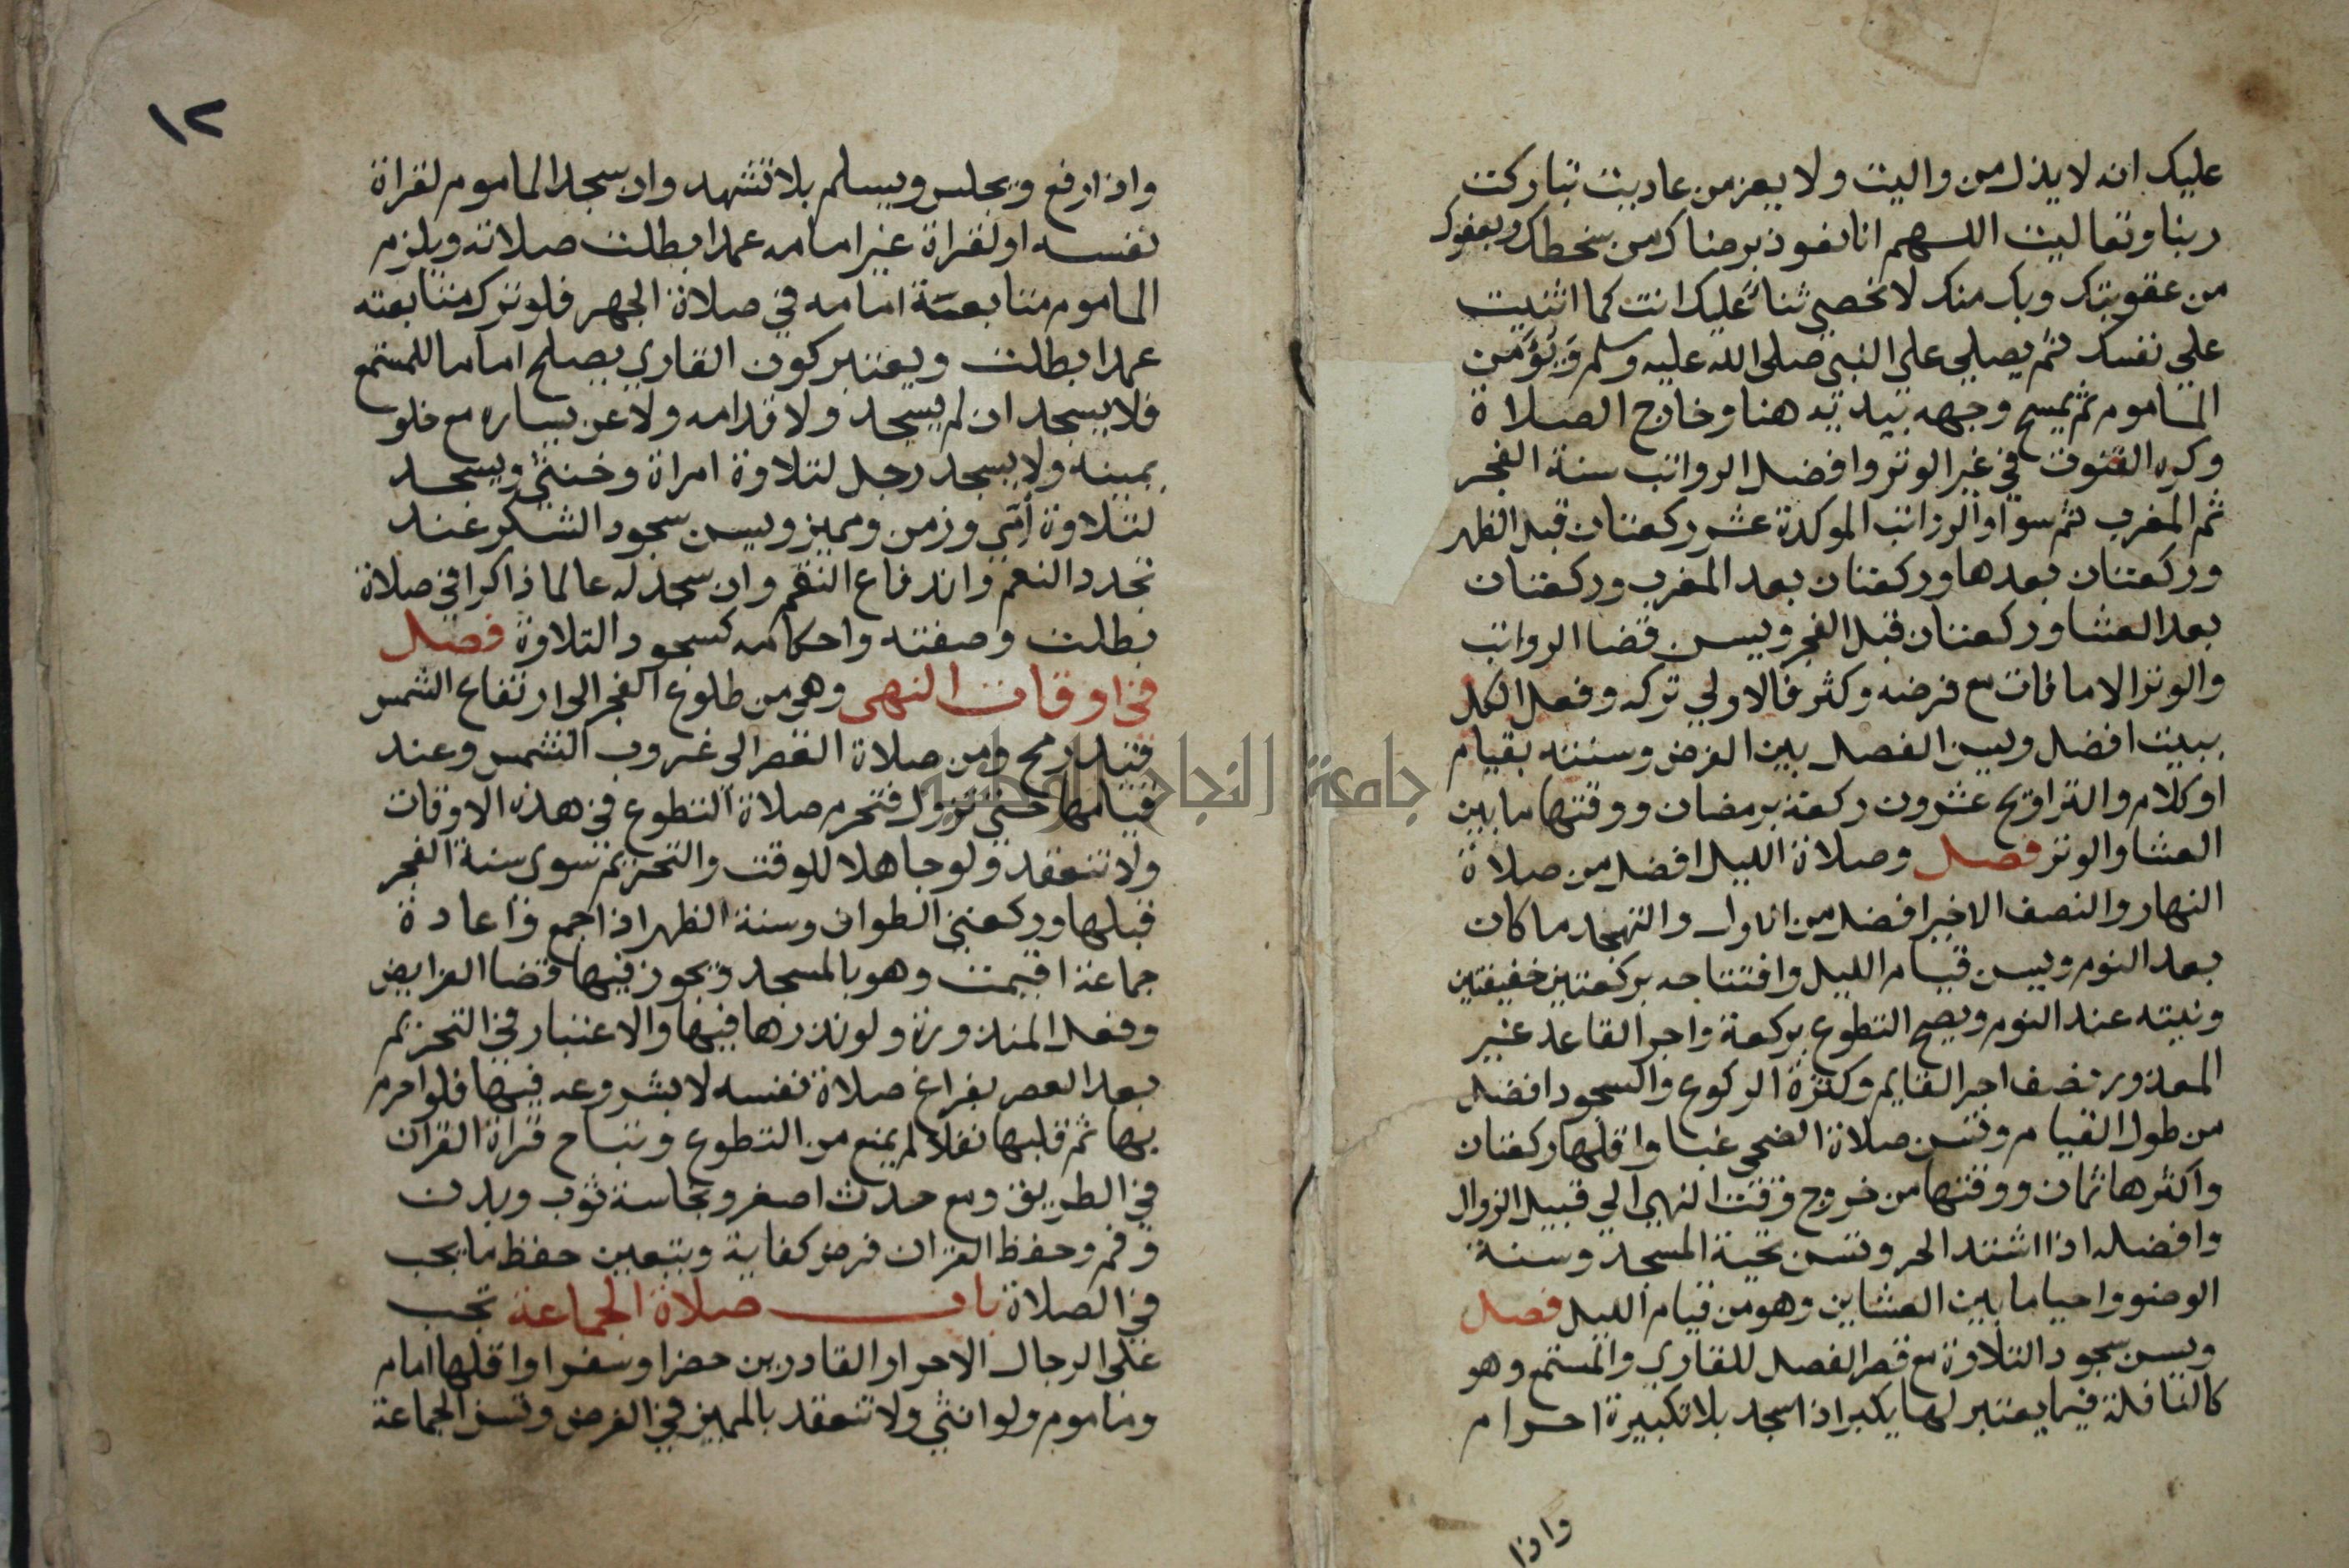 عليك انه لا يذل من واليت ولا يعز من عاديت تباركت
ربنا وتعاليت اللهم انا نعوذ برضاك من سخطك وبعفوك
من عقوبتك وبك منك لا نحصي ثناء عليك انت كما اثنيت
على نفسك ثم يصلي على النبي صلى الله عليه وسلم ويؤمن
الماموم ثم يمسح وجهه بيديه هنا وخارج الصلاة
وكره القنوت في غير الوتر وافضل الرواتب سنة الفجر
ثم المغرب ثم سواء والرواتب الموكدة عشر ركعتان قبل الظهر
وركعتان بعدها وركعتان بعد المغرب وركعتان
بعد العشا وركعتان قبل الفجر ويسن قضا الرواتب
والوتر الا ما فات مع فرضه وكثر فالاولي تركه وفعل الكل
ببيت افضل ويسن الفصل بين الفرض وسنته بقيام
او كلام والتراويح عشرون ركعة برمضان ووقتها ما بين
العشا والوتر فصل وصلاة الليل افضل من صلاة
النهار والنصف الاخير افضل من الاول والتهجد ما كان
بعد النوم ويسن قيام الليل وافتتاحه بركعتين خفيفتين
ونيته عند النوم ويصح التطوع بركعة واجر القاعد غير
المعذور نصف اجر القايم وكثرة الركوع والسجود افضل
من طول القيام وتسن صلاة الضحى غبا واقلها ركعتان
واكثرها ثمان ووقتها من خروج وقت النهي الي قبيل الزوال
وافضله اذا اشتد الحر وتسن تحية المسجد وسنة
الوضوء واحيا ما بين العشاين وهو من قيام الليل فصل
ويسن سجود التلاوة مع قصر الفصل للقاري والمستمع وهو
كالنافلة فيما يعتبر لها يكبر اذا سجد بلا تكبيرة احرام
واذا
١٢
واذا رفع ويجلس ويسلم بلا تشهد وان سجد الماموم لقراة
نفسه او لقراة غير امامه عمدا بطلت صلاته ويلزم
الماموم متابعة امامه في صلاة الجهر فلو ترك متابعته
عمدا بطلت ويعتبر كون القاري يصلح اماما للمستمع
فلا يسجد ان لم يسجد ولا قدامه ولا عن يساره مع خلو
يمينه ولا يسجد رجل لتلاوة امراة وخنثى ويسجد
لتلاوة أمي وزمن ومميز ويسن سجود الشكر عند
تجدد النعم واندفاع النقم وان سجد له عالما ذاكرا في صلاة
بطلت وصفته واحكامه كسجود التلاوة فصل
في اوقات النهي وهي من طلوع الفجر الى ارتفاع الشمس
قيد رمح ومن صلاة العصر الى غروب الشمس وعند
قيامها حتى تزول فتحرم صلاة التطوع في هذه الاوقات
ولا تنعقد ولو جاهلا للوقت والتحريم سوى سنة الفجر
قبلها وركعتي الطواف وسنة الظهر اذا جمع واعادة
جماعة اقيمت وهو بالمسجد ويجوز فيها قضا الفرايض
وفعل المنذورة ولو نذرها فيها والاعتبار في التحريم
بعد العصر بفراغ صلاة نفسه لا بشروعه فيها فلو احرم
بها ثم قلبها نفلا لم يمنع من التطوع وتباح قراة القران
في الطريق ومع حدث اصغر ونجاسة ثوب وبدن
وفم وحفظ القران فرض كفاية ويتعين حفظ ما يجب
في الصلاة باب صلاة الجماعة تجب
على الرجال الاحرار القادرين حضرا وسفرا واقلها امام
وماموم ولو انثي ولا تنعقد بالمميز في الفرض وتسن الجماعة
جامعة النجاح الوطنية